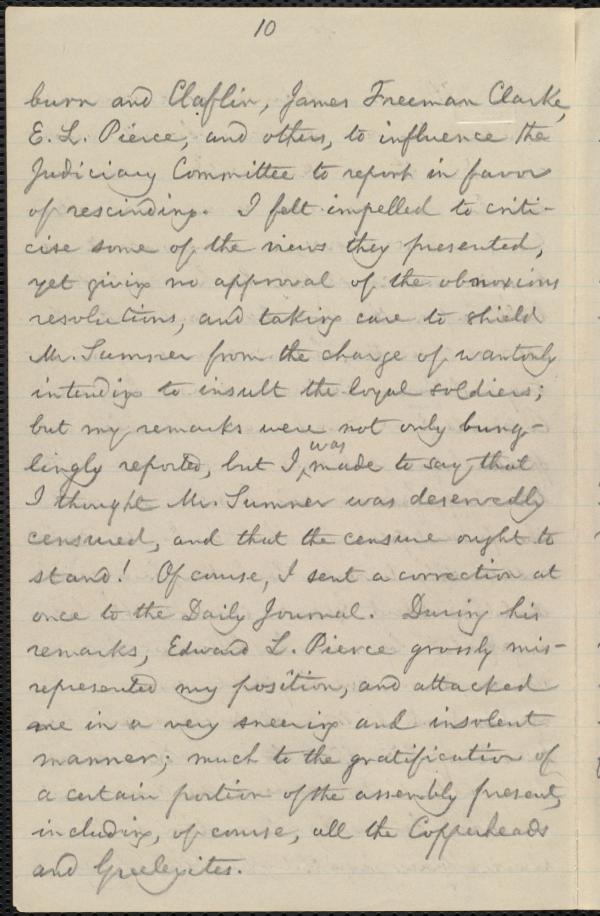 10
burn and Claflin, James Freeman Clarke,
E. L. Pierce, and others, to influence the
Judiciary Committee to report in favor
of rescinding. I felt impelled to criti-
cise some of the views they presented,
yet giving no approval of the obnoxious
resolutions, and taking care to shield
Mr. Sumner from the charge of wantonly
intending to insult the loyal soldiers;
but my remarks were not only bung-
lingly reported, but I was made to say that
I thought Mr. Sumner was deservedly
censured, and that the censure ought to
stand! Of course, I sent a correction at
once to the Daily Journal. During his
remarks, Edward L. Pierce grossly mis-
represented my position, and attacked
me in a very sneering and insolent
manner; much to the gratification of
a certain portion of the assembly present,
including, of course, all the Copperheads
and Greeleyites.